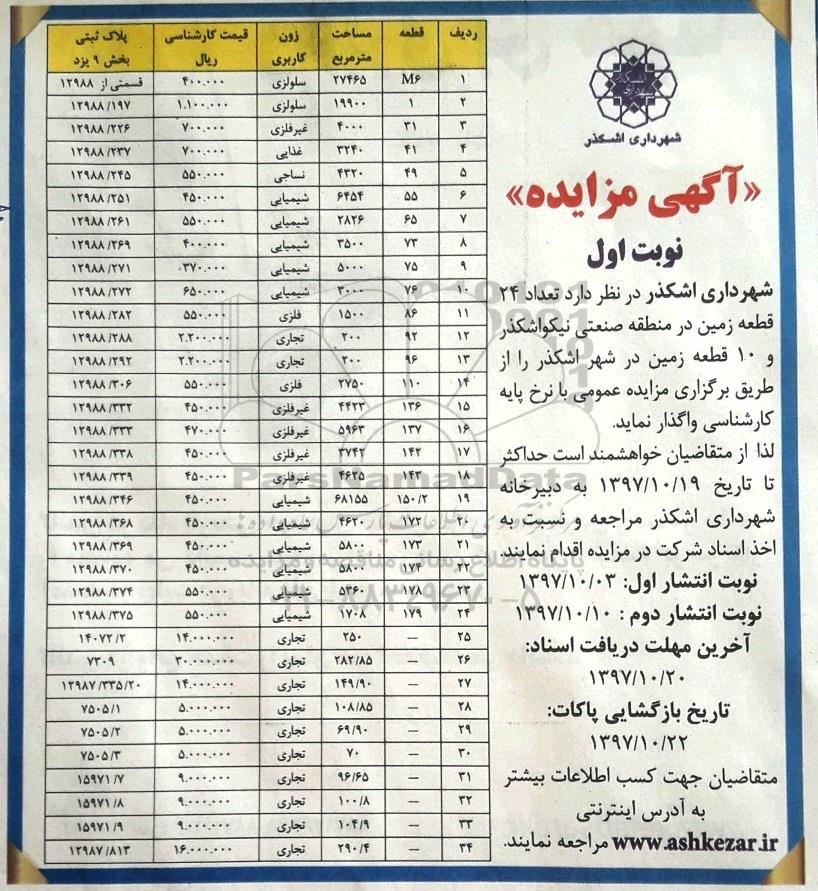 شهرداری اشکذر
«آگهی مزایده»
نوبت اول
شهرداری اشکذر در نظر دارد تعداد ۲۴
قطعه زمین در منطقه صنعتی نیکواشکذر
و ۱۰ قطعه زمین در شهر اشکذر را از
طریق برگزاری مزایده عمومی با نرخ پایه
کارشناسی واگذار نماید.
لذا از متقاضیان خواهشمند است حداکثر
تا تاریخ ۱۳۹۷/۱۰/۱۹ به دبیرخانه
شهرداری اشکذر مراجعه و نسبت به
اخذ اسناد شرکت در مزایده اقدام نمایند.
نوبت انتشار اول: ۱۳۹۷/۱۰/۰۳
نوبت انتشار دوم : ۱۳۹۷/۱۰/۱۰
آخرین مهلت دریافت اسناد:
۱۳۹۷/۱۰/۲۰
تاریخ بازگشایی پاکات:
۱۳۹۷/۱۰/۲۲
متقاضیان جهت کسب اطلاعات بیشتر
به آدرس اینترنتی
www.ashkezar.ir مراجعه نمایند.
ردیف قطعه مساحت مترمربع زون کاربری قیمت کارشناسی ریال پلاک ثبتی بخش ۹ یزد
۱ M۶ ۲۷۴۶۵ سلولزی ۴۰۰.۰۰۰ قسمتی از ۱۲۹۸۸
۲ ۱ ۱۹۹۰۰ سلولزی ۱.۱۰۰.۰۰۰ ۱۲۹۸۸/۱۹۷
۳ ۳۱ ۴۰۰۰ غیرفلزی ۷۰۰.۰۰۰ ۱۲۹۸۸/۲۲۶
۴ ۴۱ ۳۲۴۰ غذایی ۷۰۰.۰۰۰ ۱۲۹۸۸/۲۳۷
۵ ۴۹ ۴۳۲۰ نساجی ۵۵۰.۰۰۰ ۱۲۹۸۸/۲۴۵
۶ ۵۵ ۶۴۵۴ شیمیایی ۴۵۰.۰۰۰ ۱۲۹۸۸/۲۵۱
۷ ۶۵ ۲۸۲۶ شیمیایی ۵۵۰.۰۰۰ ۱۲۹۸۸/۲۶۱
۸ ۷۳ ۳۵۰۰ شیمیایی ۴۰۰.۰۰۰ ۱۲۹۸۸/۲۶۹
۹ ۷۵ ۵۰۰۰ شیمیایی ۳۷۰.۰۰۰ ۱۲۹۸۸/۲۷۱
۱۰ ۷۶ ۳۰۰۰ شیمیایی ۶۵۰.۰۰۰ ۱۲۹۸۸/۲۷۲
۱۱ ۸۶ ۱۵۰۰ فلزی ۵۵۰.۰۰۰ ۱۲۹۸۸/۲۸۲
۱۲ ۹۲ ۲۰۰ تجاری ۲.۲۰۰.۰۰۰ ۱۲۹۸۸/۲۸۸
۱۳ ۹۶ ۲۰۰ تجاری ۲.۲۰۰.۰۰۰ ۱۲۹۸۸/۲۹۲
۱۴ ۱۱۰ ۲۷۵۰ فلزی ۵۵۰.۰۰۰ ۱۲۹۸۸/۳۰۶
۱۵ ۱۳۶ ۴۴۲۳ غیرفلزی ۴۵۰.۰۰۰ ۱۲۹۸۸/۳۳۲
۱۶ ۱۳۷ ۵۹۶۳ غیرفلزی ۴۷۰.۰۰۰ ۱۲۹۸۸/۳۳۳
۱۷ ۱۴۲ ۳۷۴۲ غیرفلزی ۴۵۰.۰۰۰ ۱۲۹۸۸/۳۳۸
۱۸ ۱۴۳ ۴۶۲۵ غیرفلزی ۴۵۰.۰۰۰ ۱۲۹۸۸/۳۳۹
۱۹ ۱۵۰/۲ ۶۸۱۵۵ شیمیایی ۴۵۰.۰۰۰ ۱۲۹۸۸/۳۴۶
۲۰ ۱۷۲ ۴۶۲۰ شیمیایی ۴۵۰.۰۰۰ ۱۲۹۸۸/۳۶۸
۲۱ ۱۷۳ ۵۸۰۰ شیمیایی ۴۵۰.۰۰۰ ۱۲۹۸۸/۳۶۹
۲۲ ۱۷۴ ۵۸۰۰ شیمیایی ۴۵۰.۰۰۰ ۱۲۹۸۸/۳۷۰
۲۳ ۱۷۸ ۵۳۶۰ شیمیایی ۵۵۰.۰۰۰ ۱۲۹۸۸/۳۷۴
۲۴ ۱۷۹ ۱۷۰۸ شیمیایی ۵۵۰.۰۰۰ ۱۲۹۸۸/۳۷۵
۲۵ — ۲۵۰ تجاری ۱۴.۰۰۰.۰۰۰ ۱۴۰۷۲/۲
۲۶ — ۲۸۲/۸۵ تجاری ۳۰.۰۰۰.۰۰۰ ۷۳۰۹
۲۷ — ۱۴۹/۹۰ تجاری ۱۴.۰۰۰.۰۰۰ ۱۲۹۸۷/۳۳۵/۲۰
۲۸ — ۱۰۸/۸۵ تجاری ۵.۰۰۰.۰۰۰ ۷۵۰۵/۱
۲۹ — ۶۹/۹۰ تجاری ۵.۰۰۰.۰۰۰ ۷۵۰۵/۲
۳۰ — ۷۰ تجاری ۵.۰۰۰.۰۰۰ ۷۵۰۵/۳
۳۱ — ۹۶/۶۵ تجاری ۹.۰۰۰.۰۰۰ ۱۵۹۷۱/۷
۳۲ — ۱۰۰/۸ تجاری ۹.۰۰۰.۰۰۰ ۱۵۹۷۱/۸
۳۳ — ۱۰۴/۹ تجاری ۹.۰۰۰.۰۰۰ ۱۵۹۷۱/۹
۳۴ — ۲۹۰/۴ تجاری ۱۶.۰۰۰.۰۰۰ ۱۲۹۸۷/۸۱۳
ParsNamadData
پایگاه اطلاع رسانی مناقصه و مزایده
۰۲۱-۸۸۳۴۹۶۷۰-۵